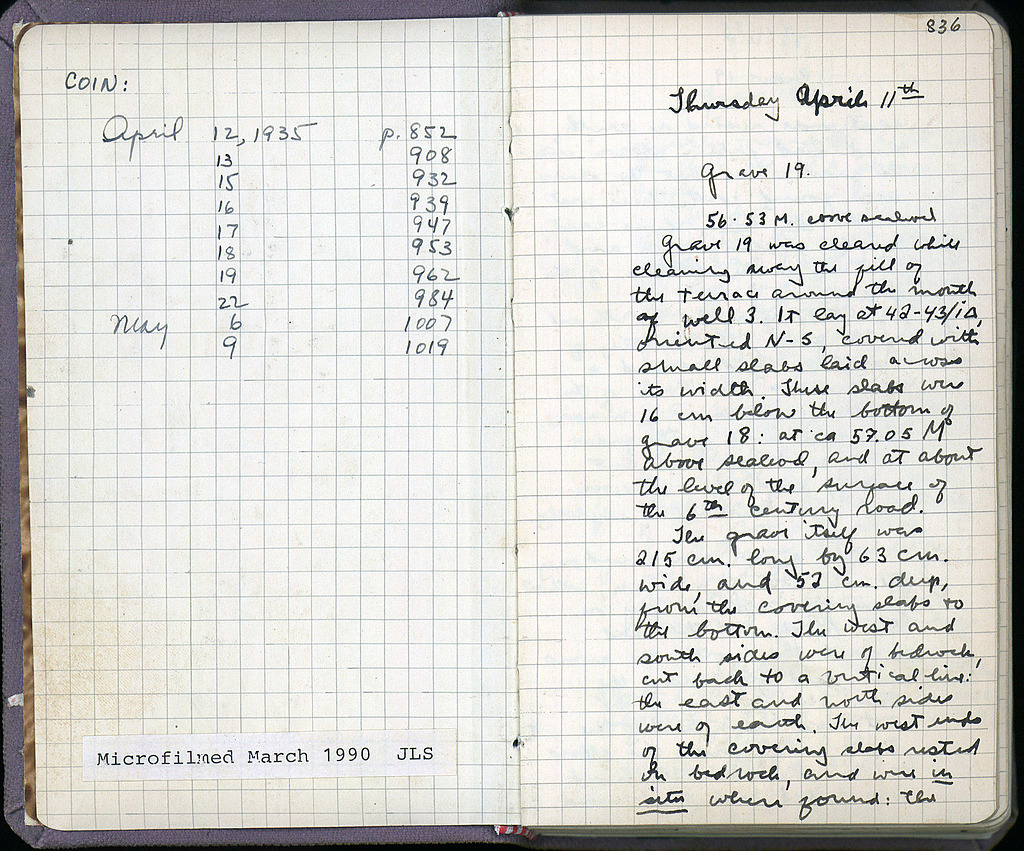 COIN:
April 12, 1935 p. 852
13 908
15 932
16 939
17 947
18 953
19 962
22 984
May 6 1007
9 1019
Microfilmed March 1990 JLS
836
Thursday April 11th
Grave 19.
56.53 M. above sealevel
Grave 19 was cleared while
cleaning away the fill of
the terrace around the mouth
of well 3. It lay at 42-43/ΙΔ,
oriented N-S, covered with
small slabs laid across
its width. These slabs were
16 cm below the bottom of
grave 18: at ca 57.05 M
above sealevel, and at about
the level of the surface of
the 6th century road.
The grave itself was
215 cm. long by 63 cm.
wide, and 52 cm. deep,
from the covering slabs to
the bottom. The west and
south sides were of bedrock,
cut back to a vertical line:
the east and north sides
were of earth. The west ends
of the covering slabs rested
on bedrock, and were in
situ where found: the